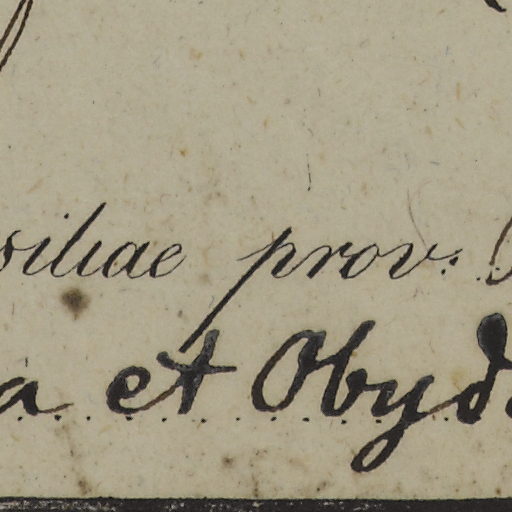 siliae prov.
a et Obyd